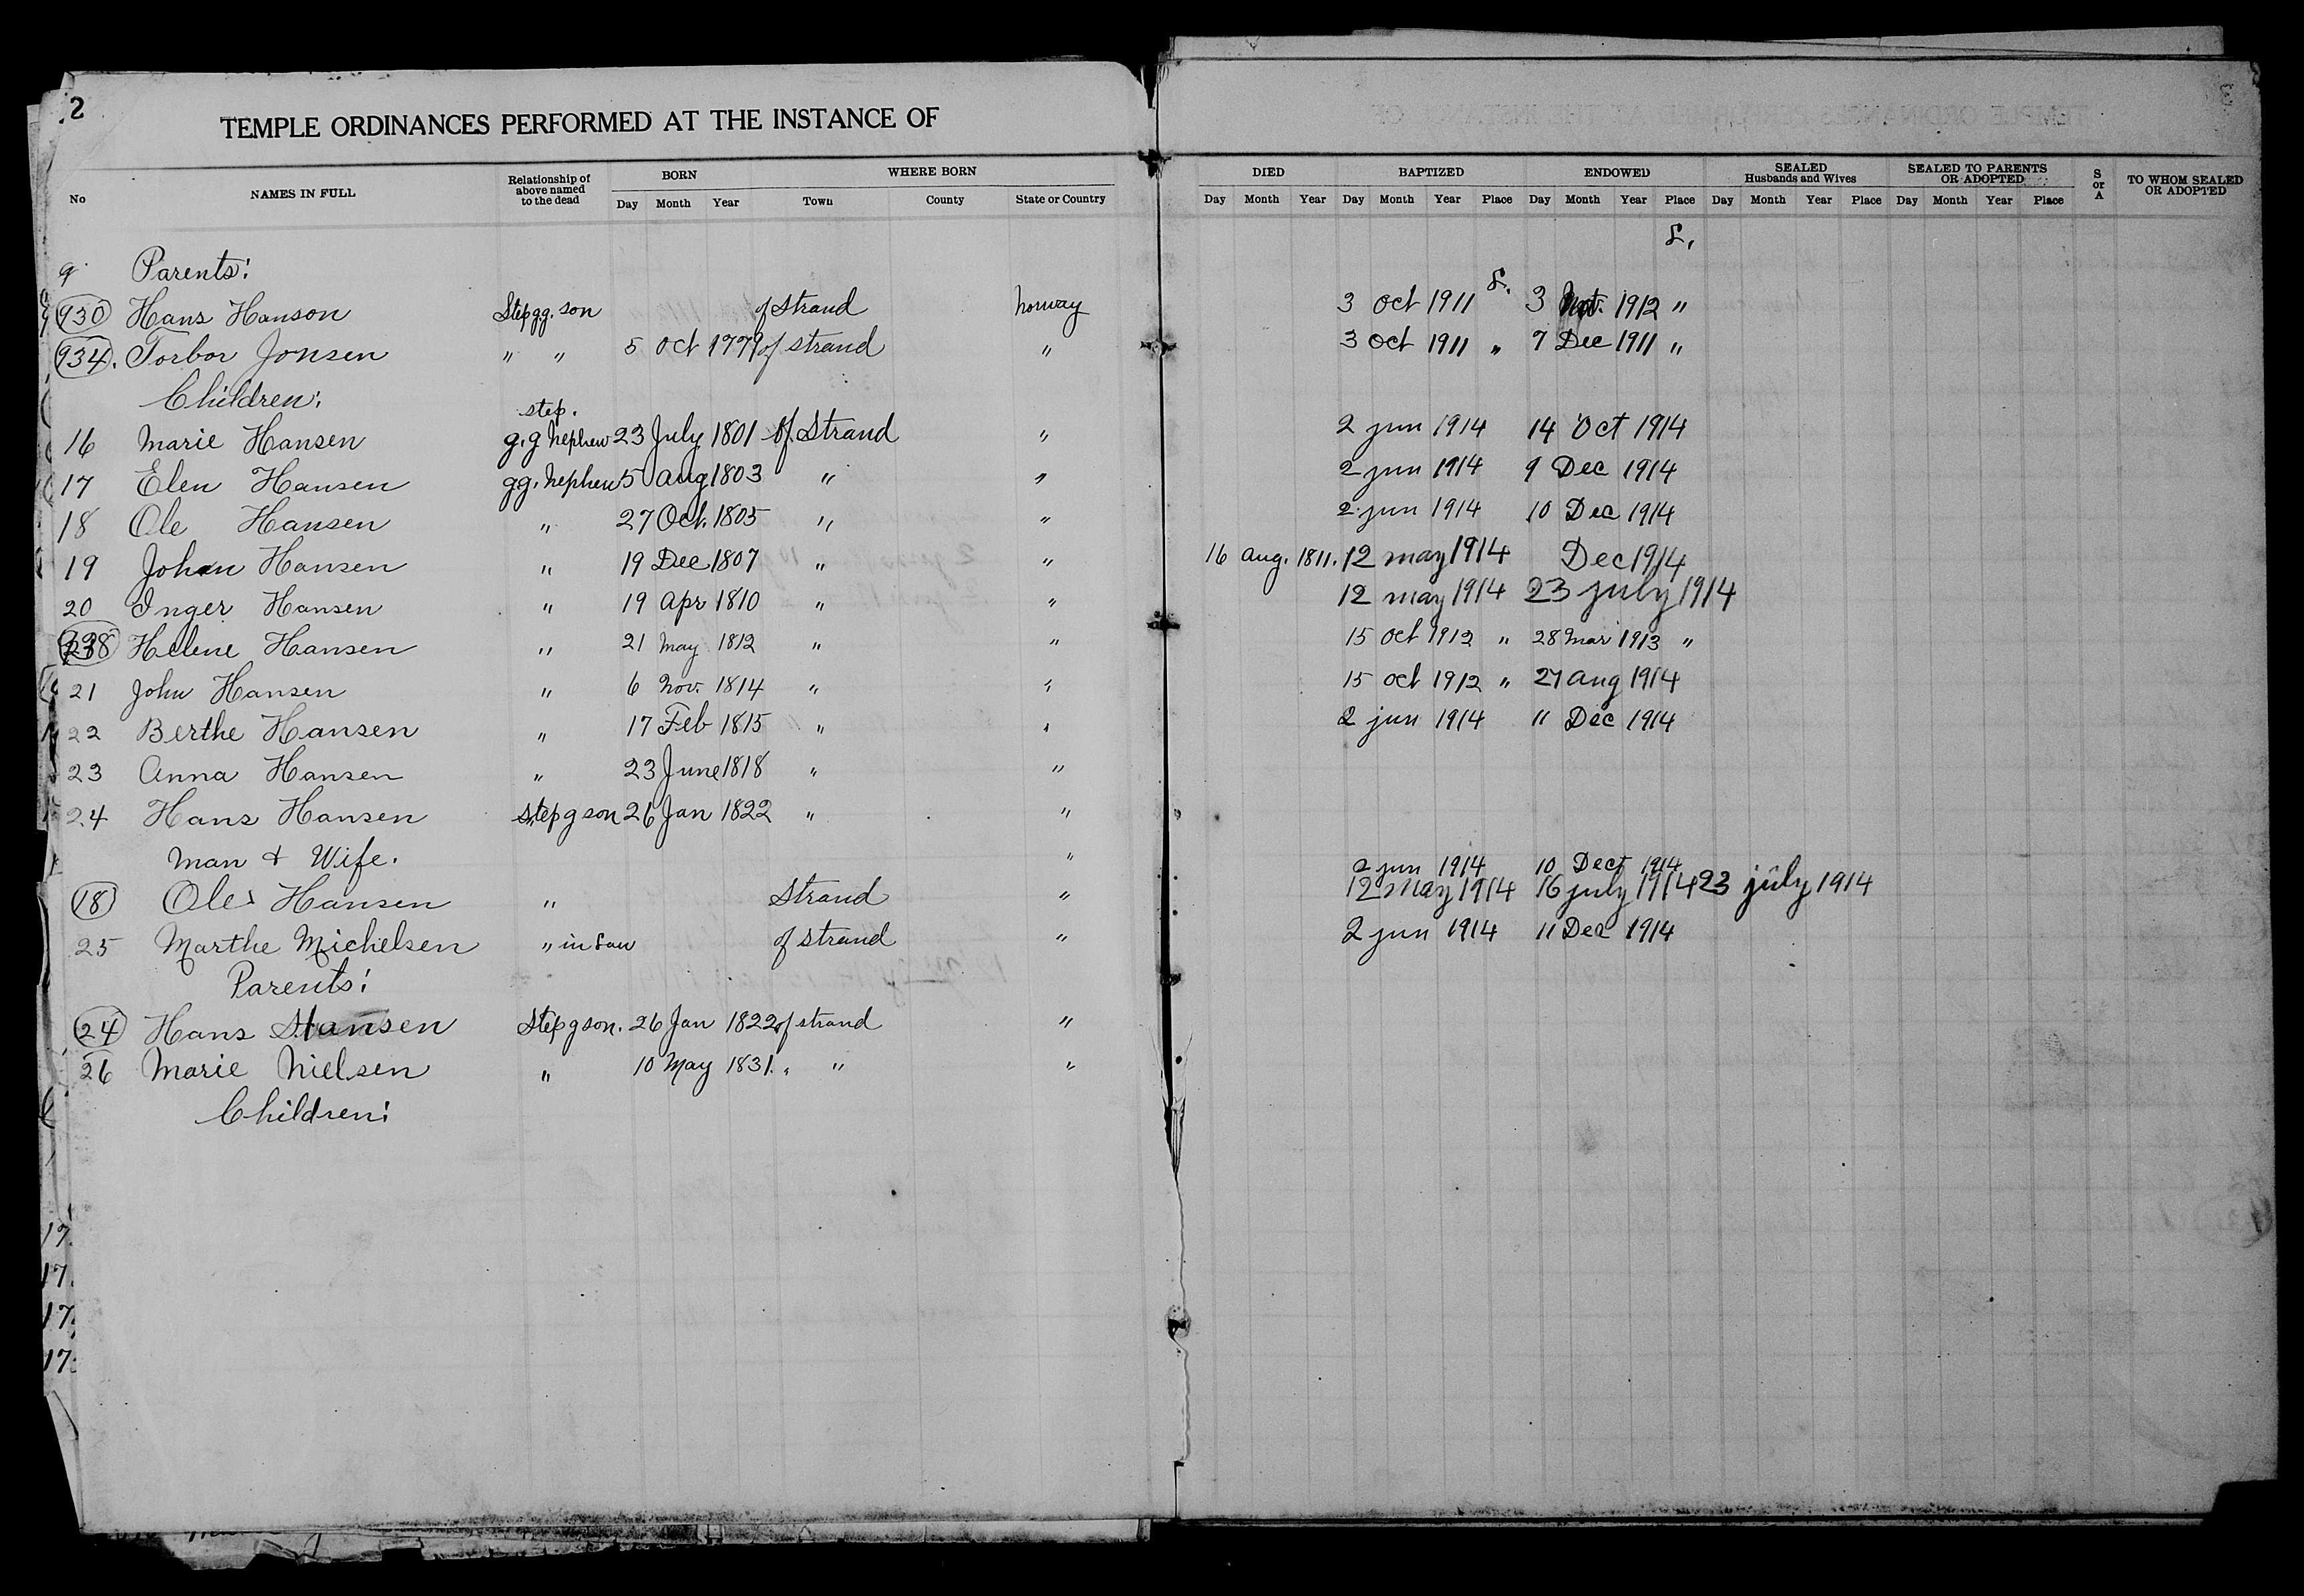 2
TEMPLE ORDINANCES PERFORMED AT THE INSTANCE OF
No NAMES IN FULL Relationship of above named to the dead BORN Day Month Year WHERE BORN Town County State or Country DIED Day Month Year BAPTIZED Day Month Year Place ENDOWED Day Month Year Place SEALED Husbands and Wives Day Month Year Place SEALED TO PARENTS OR ADOPTED Day Month Year Place S or A TO WHOM SEALED OR ADOPTED
S.
9 Parents:
930 Hans Hanson Step gg. son of Strand Norway 3 Oct 1911 S. 3 1912 "
934. Torbor Jonsen " " 5 Oct 1779 of Strand " 3 Oct 1911 " 7 Dec 1911 "
Children:
16 Marie Hansen step. g.g nephew 23 July 1801 of Strand " 2 jun 1914 14 Oct 1914
17 Elen Hansen gg. nephew 5 Aug 1803 " " 2 jun 1914 9 Dec 1914
18 Ole Hansen " 27 Oct. 1805 " " 2 jun 1914 10 Dec 1914
19 Johan Hansen " 19 Dec 1807 " " 16 Aug. 1811. 12 may 1914 Dec 1914
20 Inger Hansen " 19 Apr 1810 " " 12 may 1914 23 july 1914
Helene Hansen " 21 May 1812 " " 15 Oct 1912 " 28 Mar 1913 "
21 John Hansen " 6 Nov. 1814 " " 15 oct 1912 " 27 Aug 1914
22 Berthe Hansen " 17 Feb 1815 " " 2 jun 1914 11 Dec 1914
23 Anna Hansen " 23 June 1818 " "
24 Hans Hansen step g son 26 Jan 1822 " "
Man & Wife. " 2 jun 1914 10 Dec 1914
18 Ole Hansen " Strand " 12 May 1914 16 july 1914 23 july 1914
25 Marthe Michelsen " in Law of Strand " 2 jun 1914 11 Dec 1914
Parents:
24 Hans Hansen Step g son. 26 Jan 1822 of Strand "
26 Marie Nielsen " 10 May 1831. " " "
Children:
17.
17.
17.
17.